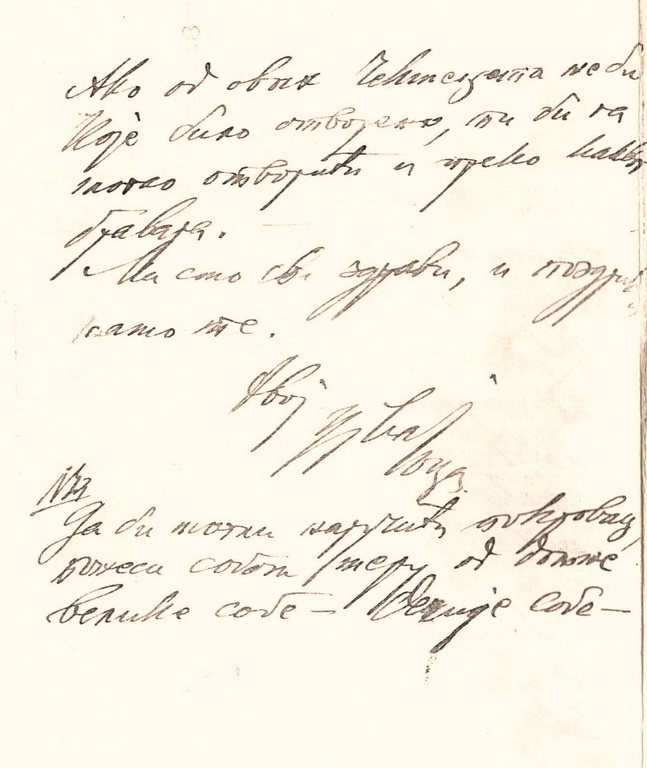 Ако од ових Чекмеџета не би
које било отворено, ти би га
могао отворити и преко каквог
бравара.
Ми смо сви здрави, и поздрав
љамо те.
Твој
NB
Да би могли наручити покровац,
понеси собом меру од доње
велике собе — Дечије собе —